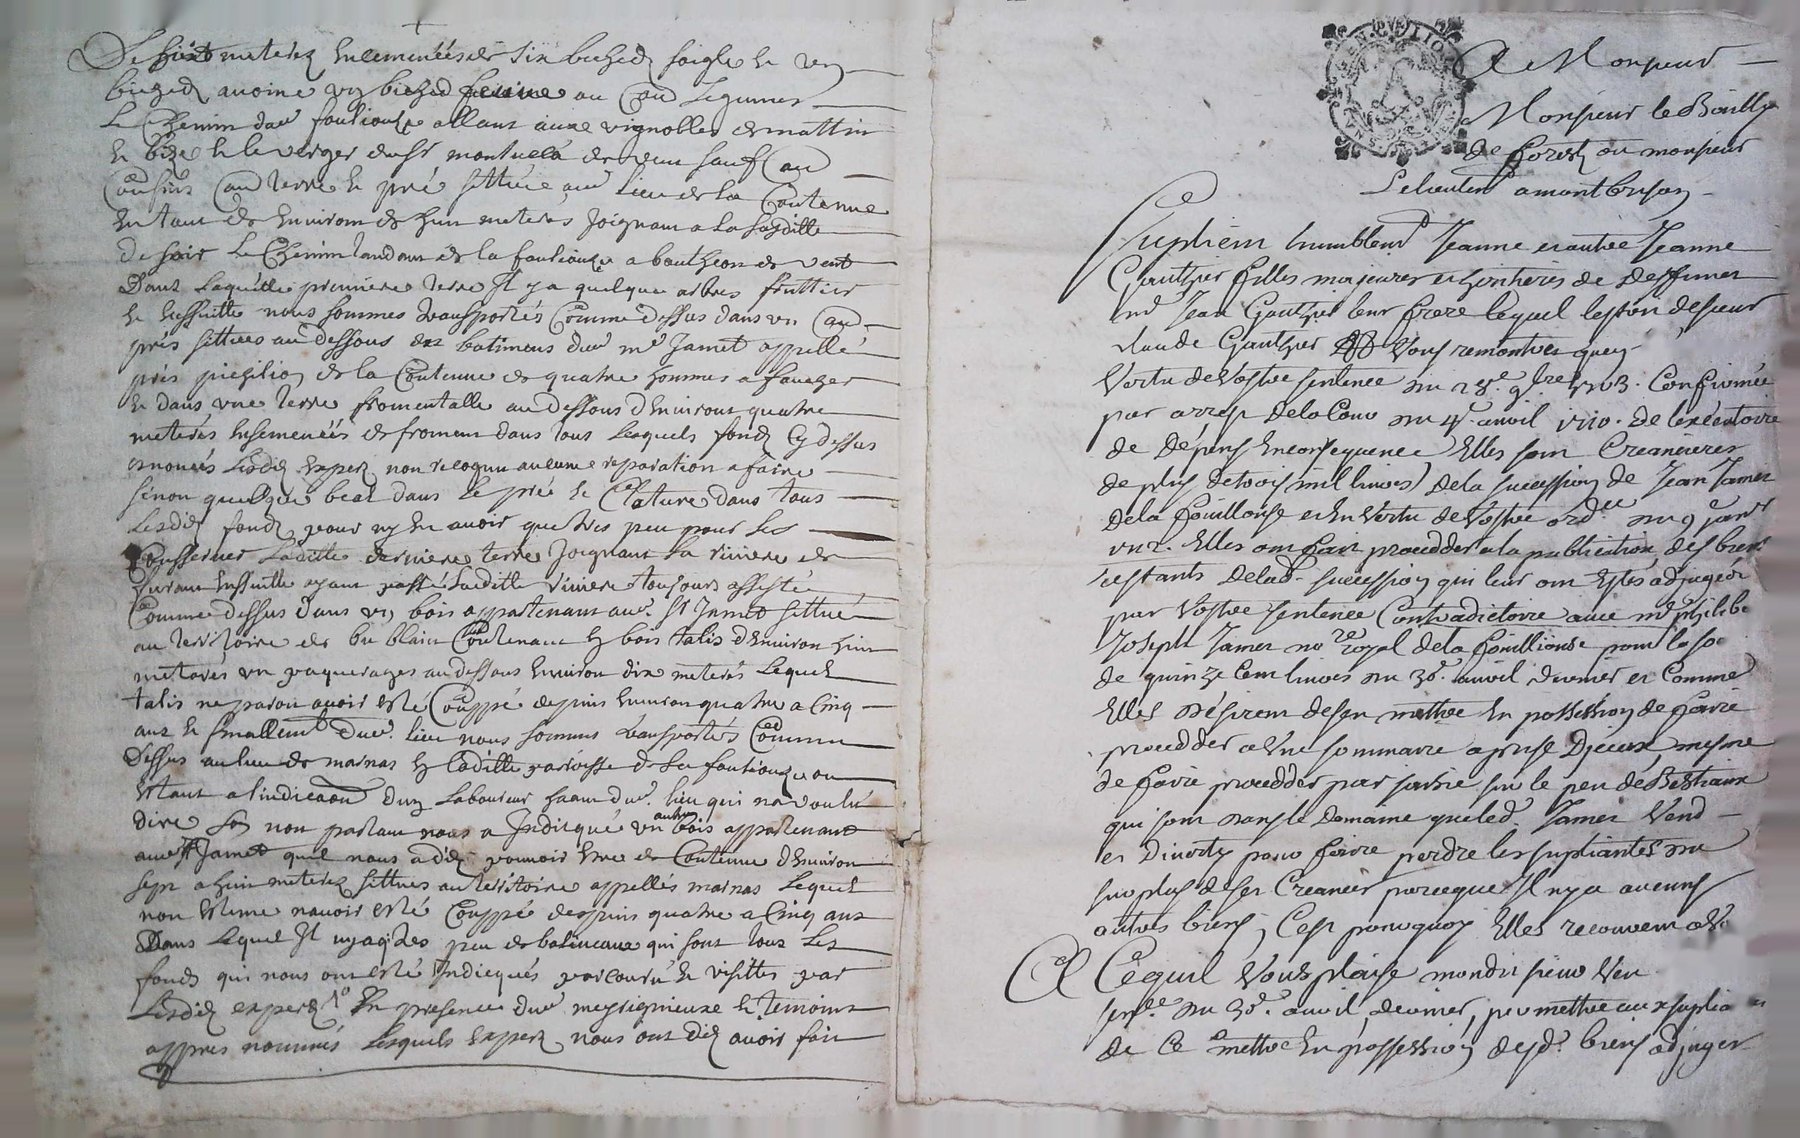 De huict meterez ensemencées de six bichedz soigle et un
bichedz avoine un bichedz au Cau Legumes
Le Chemin de la fouliouze allant aux vignobles de mattin
et bize et le verger dudit montuela de vent sauf Cau
Confins Cau terre et pré sittuée au lieu de la Contenue
en tout de environ de huit meteres Joignant a La Susditte
de soir Le Chemin tandant de la fouliouze a bouthéon de vent
Dans Laquelle premiere terre Il y a quelque arbres fruttier
et Ensuitte nous sommes transportés Comme dessus dans un Cau
prés sittues au dessous des batimens dud. me Jamet appellé
prés de la Contenue de quatre hommes a faucher
et dans une terre fromentalle au dessous d'Environt quatre
meterés Ensemencées de froment dans tous Lesquels fondz Cy dessus
enoncés Lesdiz Experz non recognu aucune reparation a faire
sinon quelque beal dans Le pré et Clature dans tous
Lesdiz fondz pour ny En avoir que tres peu pour Les
Conserver Laditte derniere terre Joignant La riviere de
furant Ensuitte ayant passé Laditte riviere toujours assisté
Comme dessus dans un bois appartenant aud. Sr Jamet sittué
au territoire de Contenant En bois talis d'Environ huit
meterés un paquerages au dessous Environ dix meterés Lequel
talis ne paroit avoir esté Couppé depuis Environ quatre a Cinq
ans et finallemt dud. lieu nous sommes transportés Comme
Dessus au lieu de marnas En Laditte parroisse de La fouliouze ou
Estant a lindication d'un Laboureur dud. lieu qui na voulu
dire son non parlant nous a Indicqué un autre bois appartenant
aud. Sr Jamet quil nous a diz pouvoir Estre de Contenue d'Environ
sept a huit meterez sittues au territoire appellés marnas Lequel
non Estime navoir esté Couppé despuis quatre a Cinq ans
Dans Lequel Il ny a que des peu de balineaux qui sont tous Les
fonds qui nous ont esté Indicqués parcouru et visittes par
Lesdiz experz En presence dud. meysignieux et temoins
appres nommés Lesquels Experz nous ont diz avoir fait
A Monsieur
Monsieur le Bailly
de forestz ou monsieur
Le lieutent a montbrison
Suplient humblemt Jeanne et autre Jeanne
Gauthier filles majeures et heritieres de Deffunct
Jean Gauthier leur frere lequel lestoit de sieur
claude Gauthier Vous remontrer quen
Vertu de Vostre sentence du 28e 9bre 1703. Confirmée
par arrest de la Cour du 4e avril 1710. de lexecutoire
de Dépens En consequence Elles sont Creancieres
de plus de trois mil livres de la sucession de Jean Jamet
de la fouillouse et En Vertu de Vostre ordce du 9 janvr
1712. Elles ont fait procedder a la publication des biens
restants de lad. sucession qui leur ont Estés adjugés
par Vostre sentence Contradictoire avec me philibe
Joseph Jamet nore royal de la fouilliouse pour la so
de quinze Cent livres du 30e avril dernier et Comme
Elles désirent de sen mettre En possession de faire
procedder a Une sommaire aprise Diceux mesme
de faire procedder par saisie sur le peu de Bestiaux
qui sont dans le Domaine que led. Jamet Vend
et Divertz pour faire perdre les supliantes du
surplus de ses Creances parceque Il ny a aucuns
autres biens, C'est pourquoy Elles recourent a ce
A Cequil Vous plaise mondit sieur Veu
sence du 30e avril dernier, permettre aux suplia
de Ce mettre En possession desd. biens adjuger